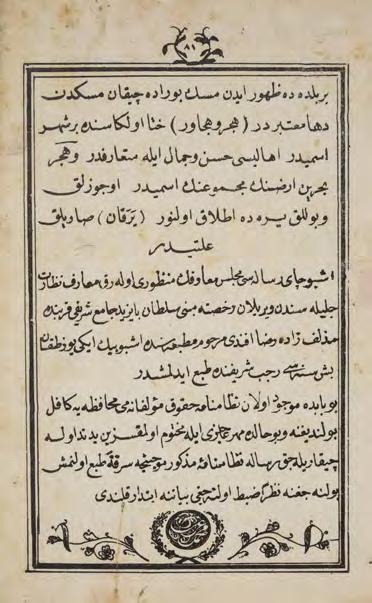 ٨١
بر بلده ده ظهور ایدن مسك بوراده چیقان مسکدن
دها معتبر در (هجر و هجاور) خثا اولکاسنده بر شهر
اسمیدر اهالیسی حسن وجمال ایله متعارفدر وهجر
بحرین ارضنك مجموعنك اسمیدر اوجوزلق
و بوللق یره ده اطلاق اولنور (یرقان) صاریلق
علتیدر
اشبو چای رساله سی مجلس معارفك منظوری اوله رق معارف نظارت
جلیله سندن ویریلان رخصته مبنی سلطان بایزید جامع شریفی قربنده
زاده رضا افندی مرحوم مطبعه سنده اشبو بیك ایکی یوز طقسان
بش سنه سی رجب شریفنده طبع ایدلمشدر
بو بابده موجود اولان نظامنامه حقوق مؤلفانه یی محافظه یه کافل
بولندیغنه و بو حاله مهر ایله مختوم اولمقسزین یدند اوله
چیقاریله جق رساله نظامنامۀ مذکور موجبنجه سرقة طبع اولنمش
بولنه جغنه نظراً ضبط اولنه جغی بیاننه ابتدار قلندی